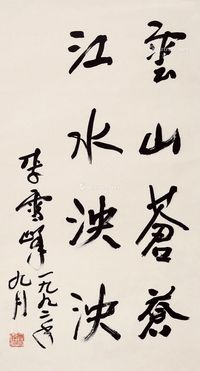 雲山蒼蒼
江水泱泱
李雪峰一九九二年
九月